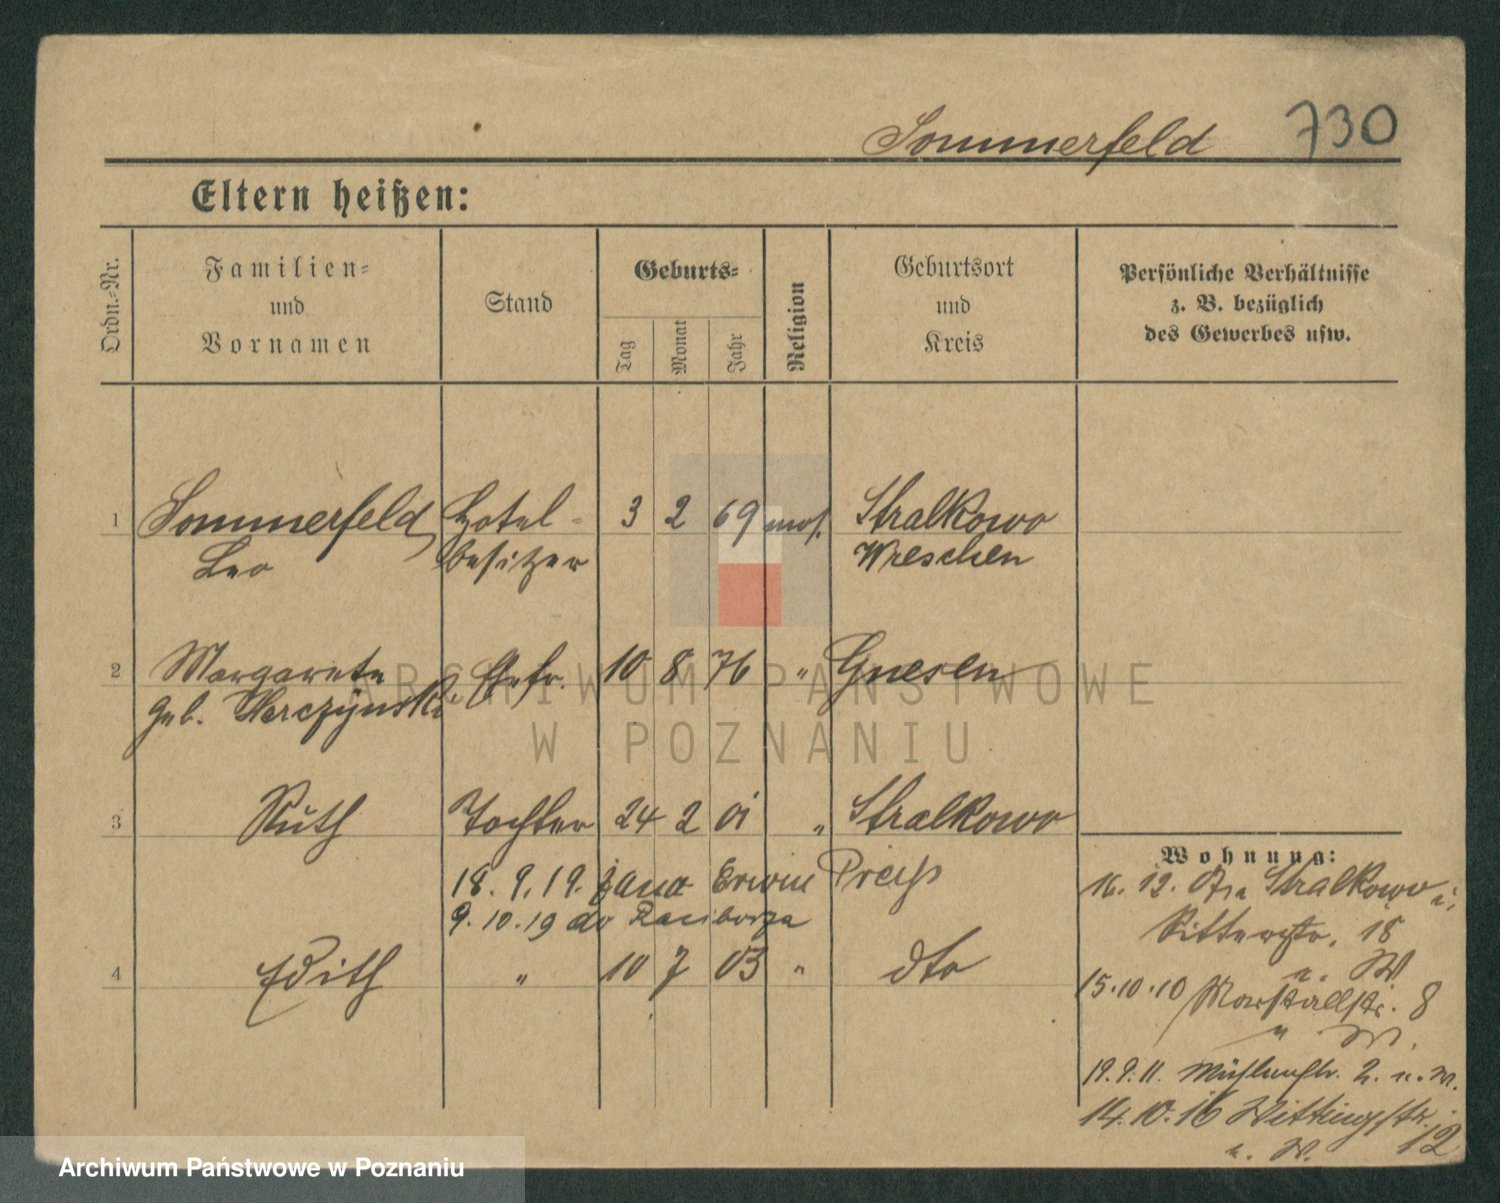 Sommerfeld 730
Eltern heißen:
Ordn.-Nr.
Familien- und Vornamen
Stand
Geburts-
Tag
Monat
Jahr
Religion
Geburtsort und Kreis
Persönliche Verhältnisse
z. B. bezüglich
des Gewerbes usw.
1 Sommerfeld Hotel- 3 2 69 mos. Stralkowo
Leo besitzer Wreschen
2 Margarete Ehefr. 10 8 76 " Gnesen
geb. Werczynski
3 Ruth Tochter 24 2 01 " Stralkowo
18. 9. 19. żona Erwin Preuß
9. 10. 19 do Raciborza
4 Edith " 10 7 03 " dto
Wohnung:
16. 12. Stralkowo
Ritterstr. 18
u. W.
15.10.10 Marstallstr. 8
u. W.
19.9.11. Mühlenstr. 2. u. W.
14.10.16 Wittingstr. 12
u. W.
ARCHIWUM PAŃSTWOWE
W POZNANIU
Archiwum Państwowe w Poznaniu